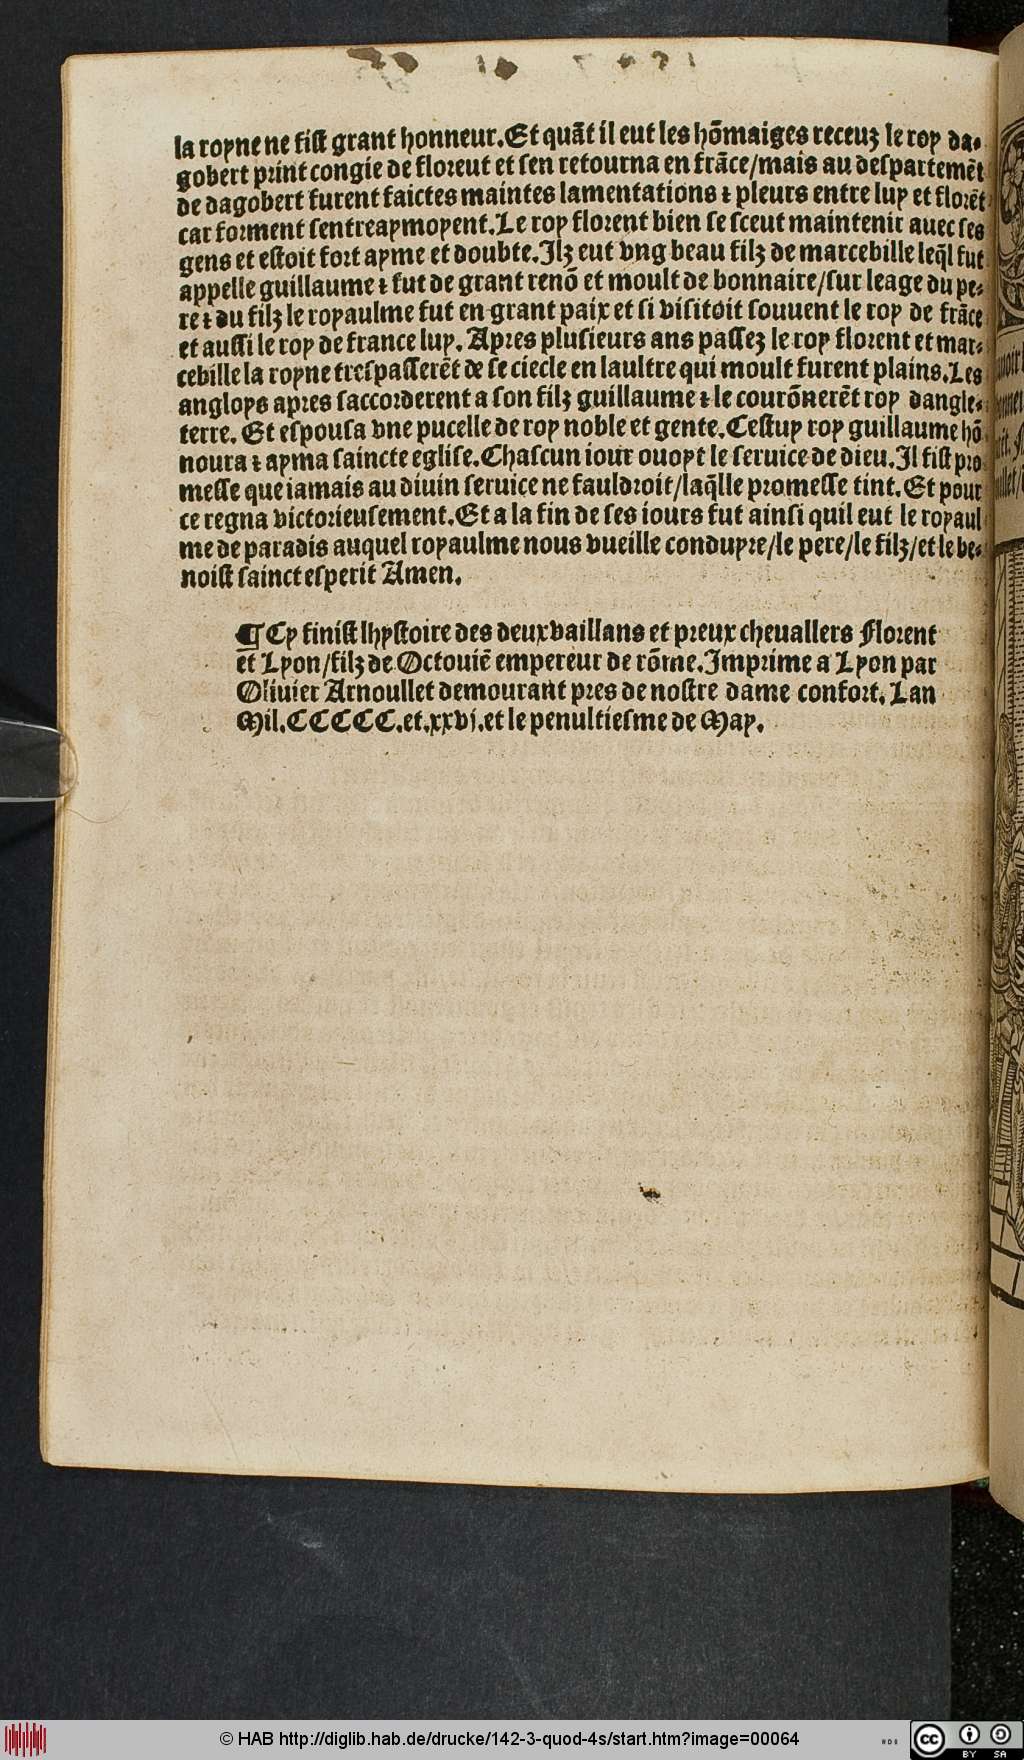 la royne ne fist grant honneur. Et quāt il eut les hōmaiges receuz le roy da⸗
gobert print congie de floreut et sen retourna en frāce/mais au despartemēt
de dagobert furent faictes maintes lamentations ⁊ pleurs entre luy et florēt
car forment sentreaymoyent. Le roy florent bien se sceut maintenir auec ses
gens et estoit fort ayme et doubte. Ilz eut vng beau filz de marcebille leq̄l fut
appelle guillaume ⁊ fut de grant renō et moult de bonnaire/sur leage du pe⸗
re ⁊ du filz le royaulme fut en grant paix et si visitoit souuent le roy de frāce
et aussi le roy de france luy. Apres plusieurs ans passez le roy florent et mar⸗
cebille la royne trespasserēt de se ciecle en laultre qui moult furent plains. Les
angloys apres saccorderent a son filz guillaume ⁊ le courōnerēt roy dangle⸗
terre. Et espousa vne pucelle de roy noble et gente. Cestuy roy guillaume hō
noura ⁊ ayma saincte eglise. Chascun iour ouoyt le seruice de dieu. Il fist pro
messe que iamais au diuin seruice ne fauldroit/laq̄lle promesse tint. Et pour
ce regna victorieusement. Et a la fin de ses iours fut ainsi quil eut le royaul
me de paradis auquel royaulme nous vueille conduyre/le pere/le filz/et le be⸗
noist sainct esperit Amen.
¶ Cy finist lhystoire des deux vaillans et preux cheuallers Florent
et Lyon/filz de Octouiē empereur de rōme. Imprime a Lyon par
Oliuier Arnoullet demourant pres de nostre dame confort. Lan
Mil. CCCCC. et. xxvj. et le penultiesme de May.
© HAB http://diglib.hab.de/drucke/142-3-quod-4s/start.htm?image=00064
cc BY SA